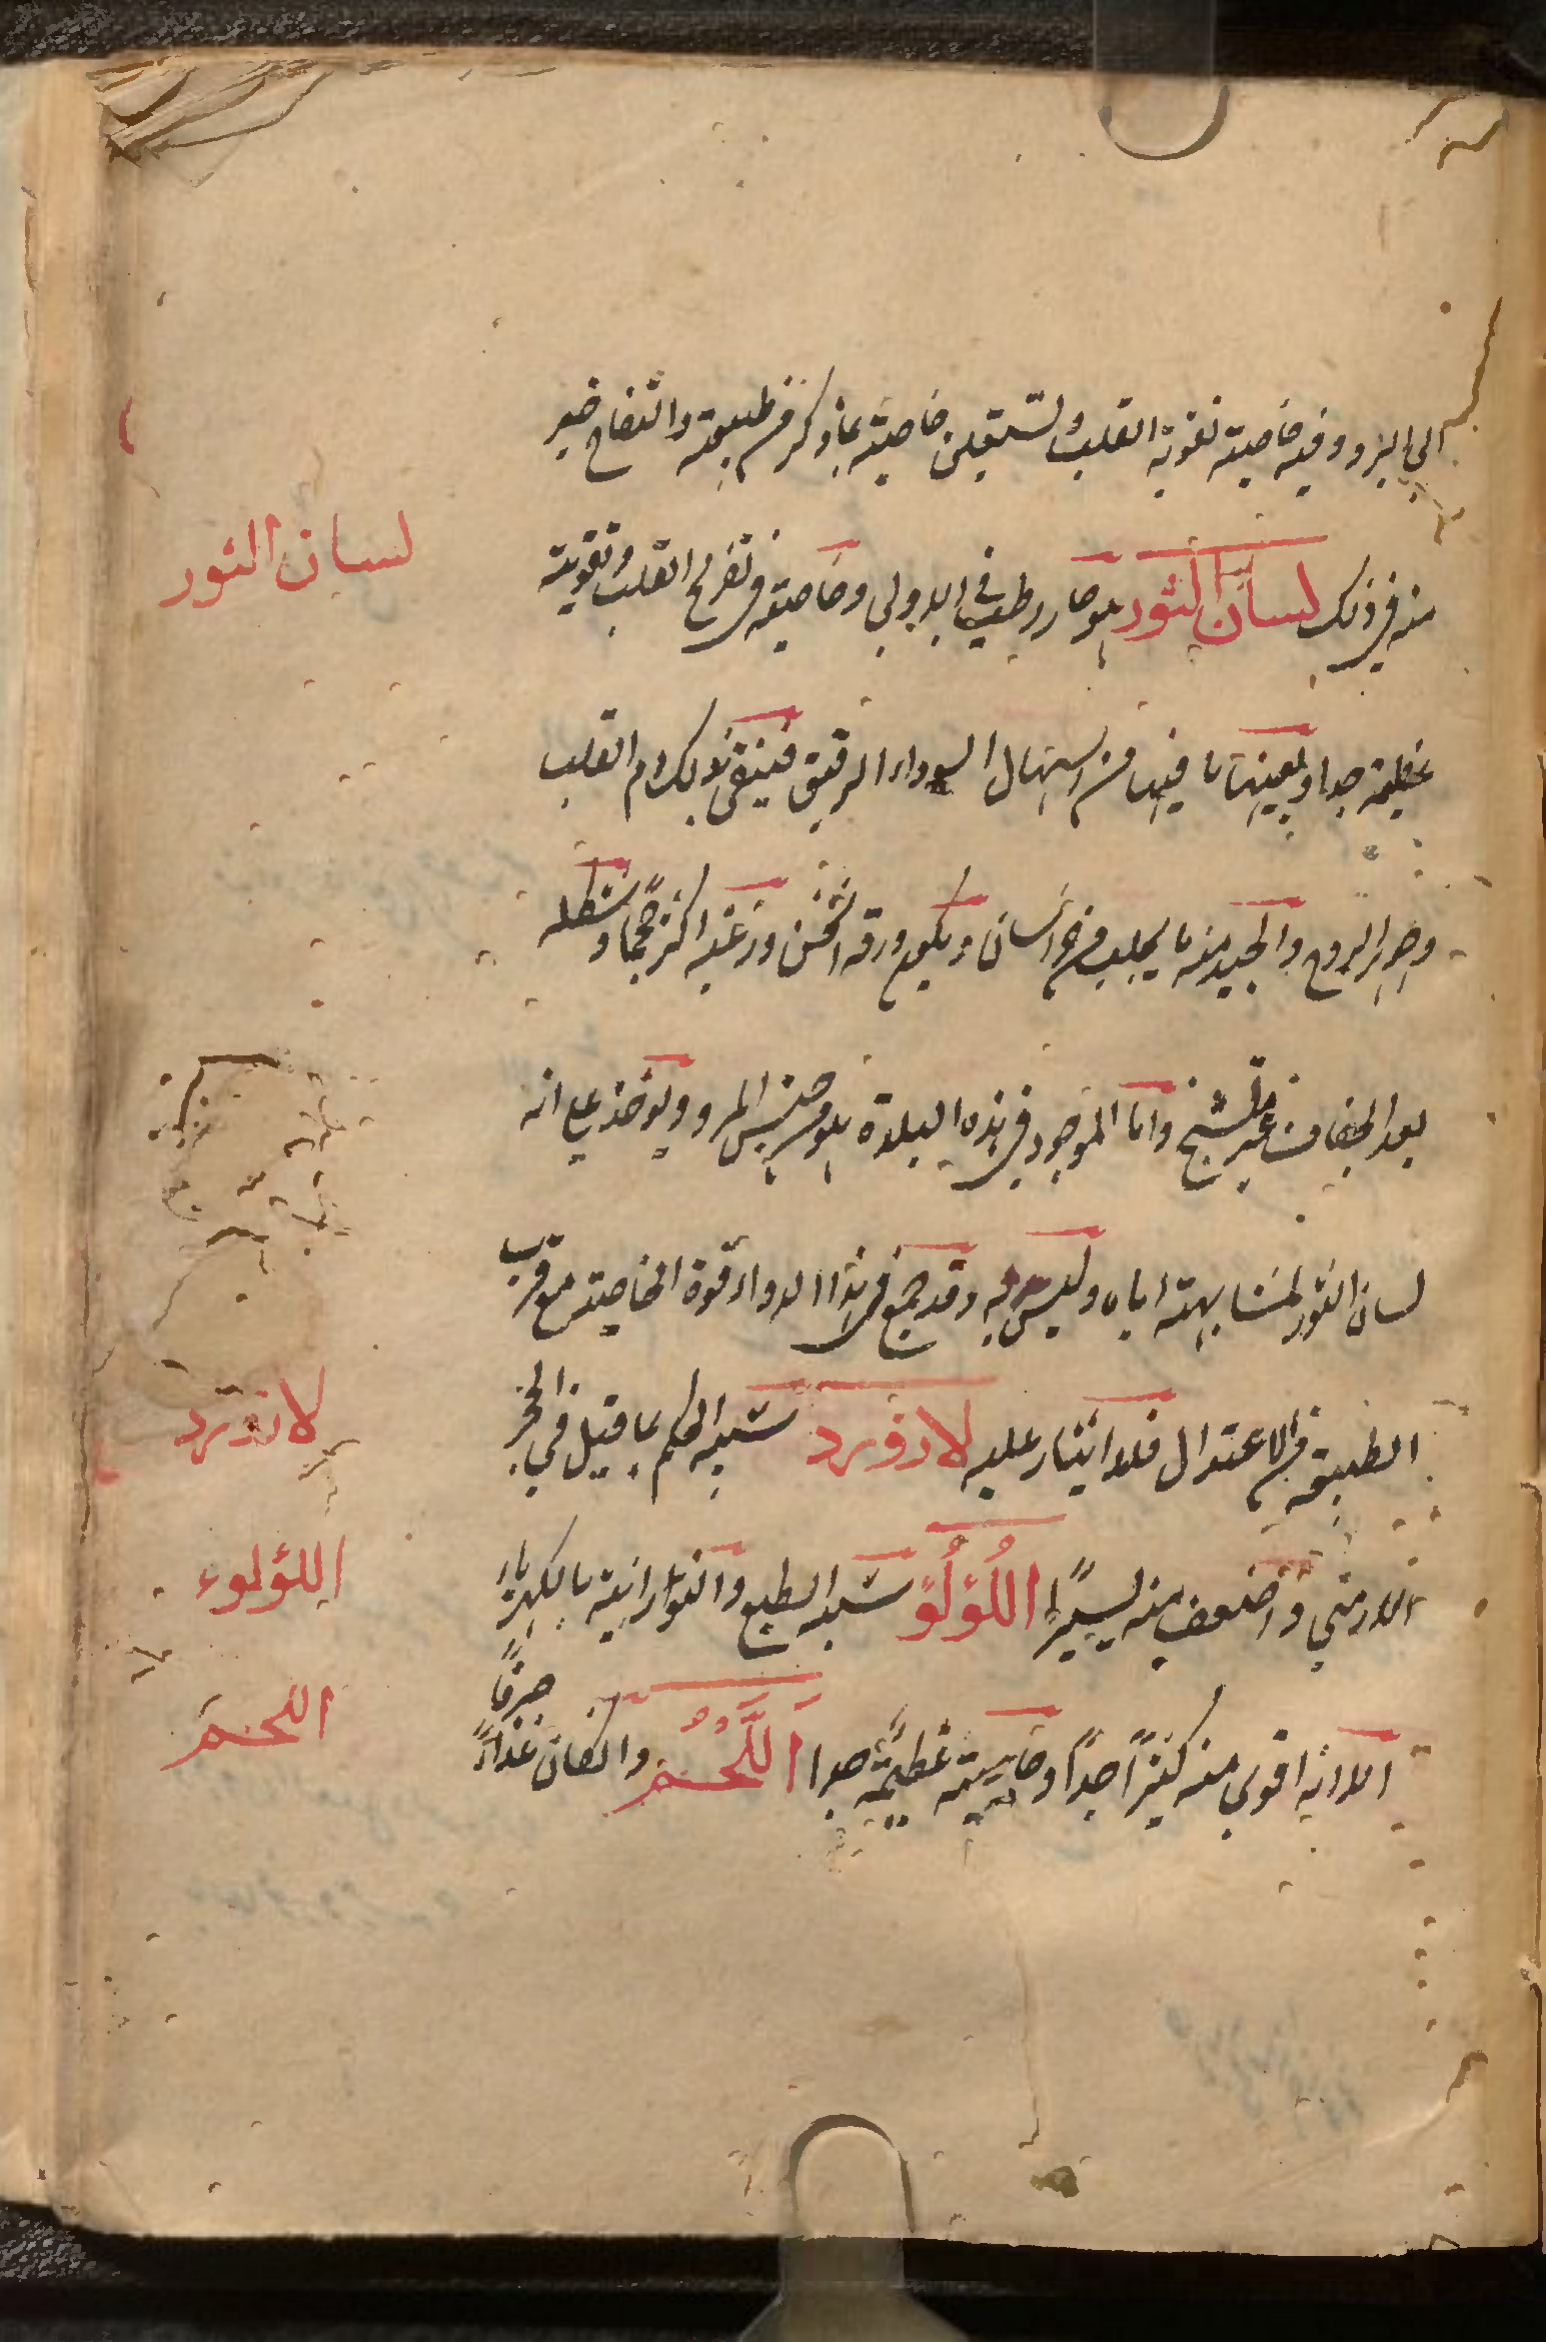 الى البرد وفيه خاصية تقوية القلب ولتستعين خاصيته بما ذكر من طبيعته والتفاح خير
منه في ذلك لسان الثور هو حار رطب في الاولى وخاصيته في تفريح القلب وتقويته
عظيمة جدا ويعينها ما فيه من اسهال السوداء الرقيق فينقي بذلك دم القلب
وجوهر الروح والجيد منه ما يجلب من خراسان ويكون ورقه اثخن وزغبه اكثر حجما وشكله
بعد الجفاف غير متشنج واما الموجود في هذه البلدة هو من جنس المرو ويؤخذ على انه
لسان الثور لمشابهته اياه وليس به وقد جمع في هذا الدواء قوة الخاصية مع قرب
الطبيعة من الاعتدال فلا ايثار عليه لازورد شبيه الحكم بما قيل في الحجر
الارمني واضعف منه يسيرًا اللُؤلُؤ شبيه الطبع والنورانية بالكهرباء
الا انه اقوى منه كثيرًا جدًا وخاصيته عظيمة جدا اَللَّحْمُ وان كان غذاءً صرفًا
لسان الثور
لازورد
اللؤلوء
اللحم